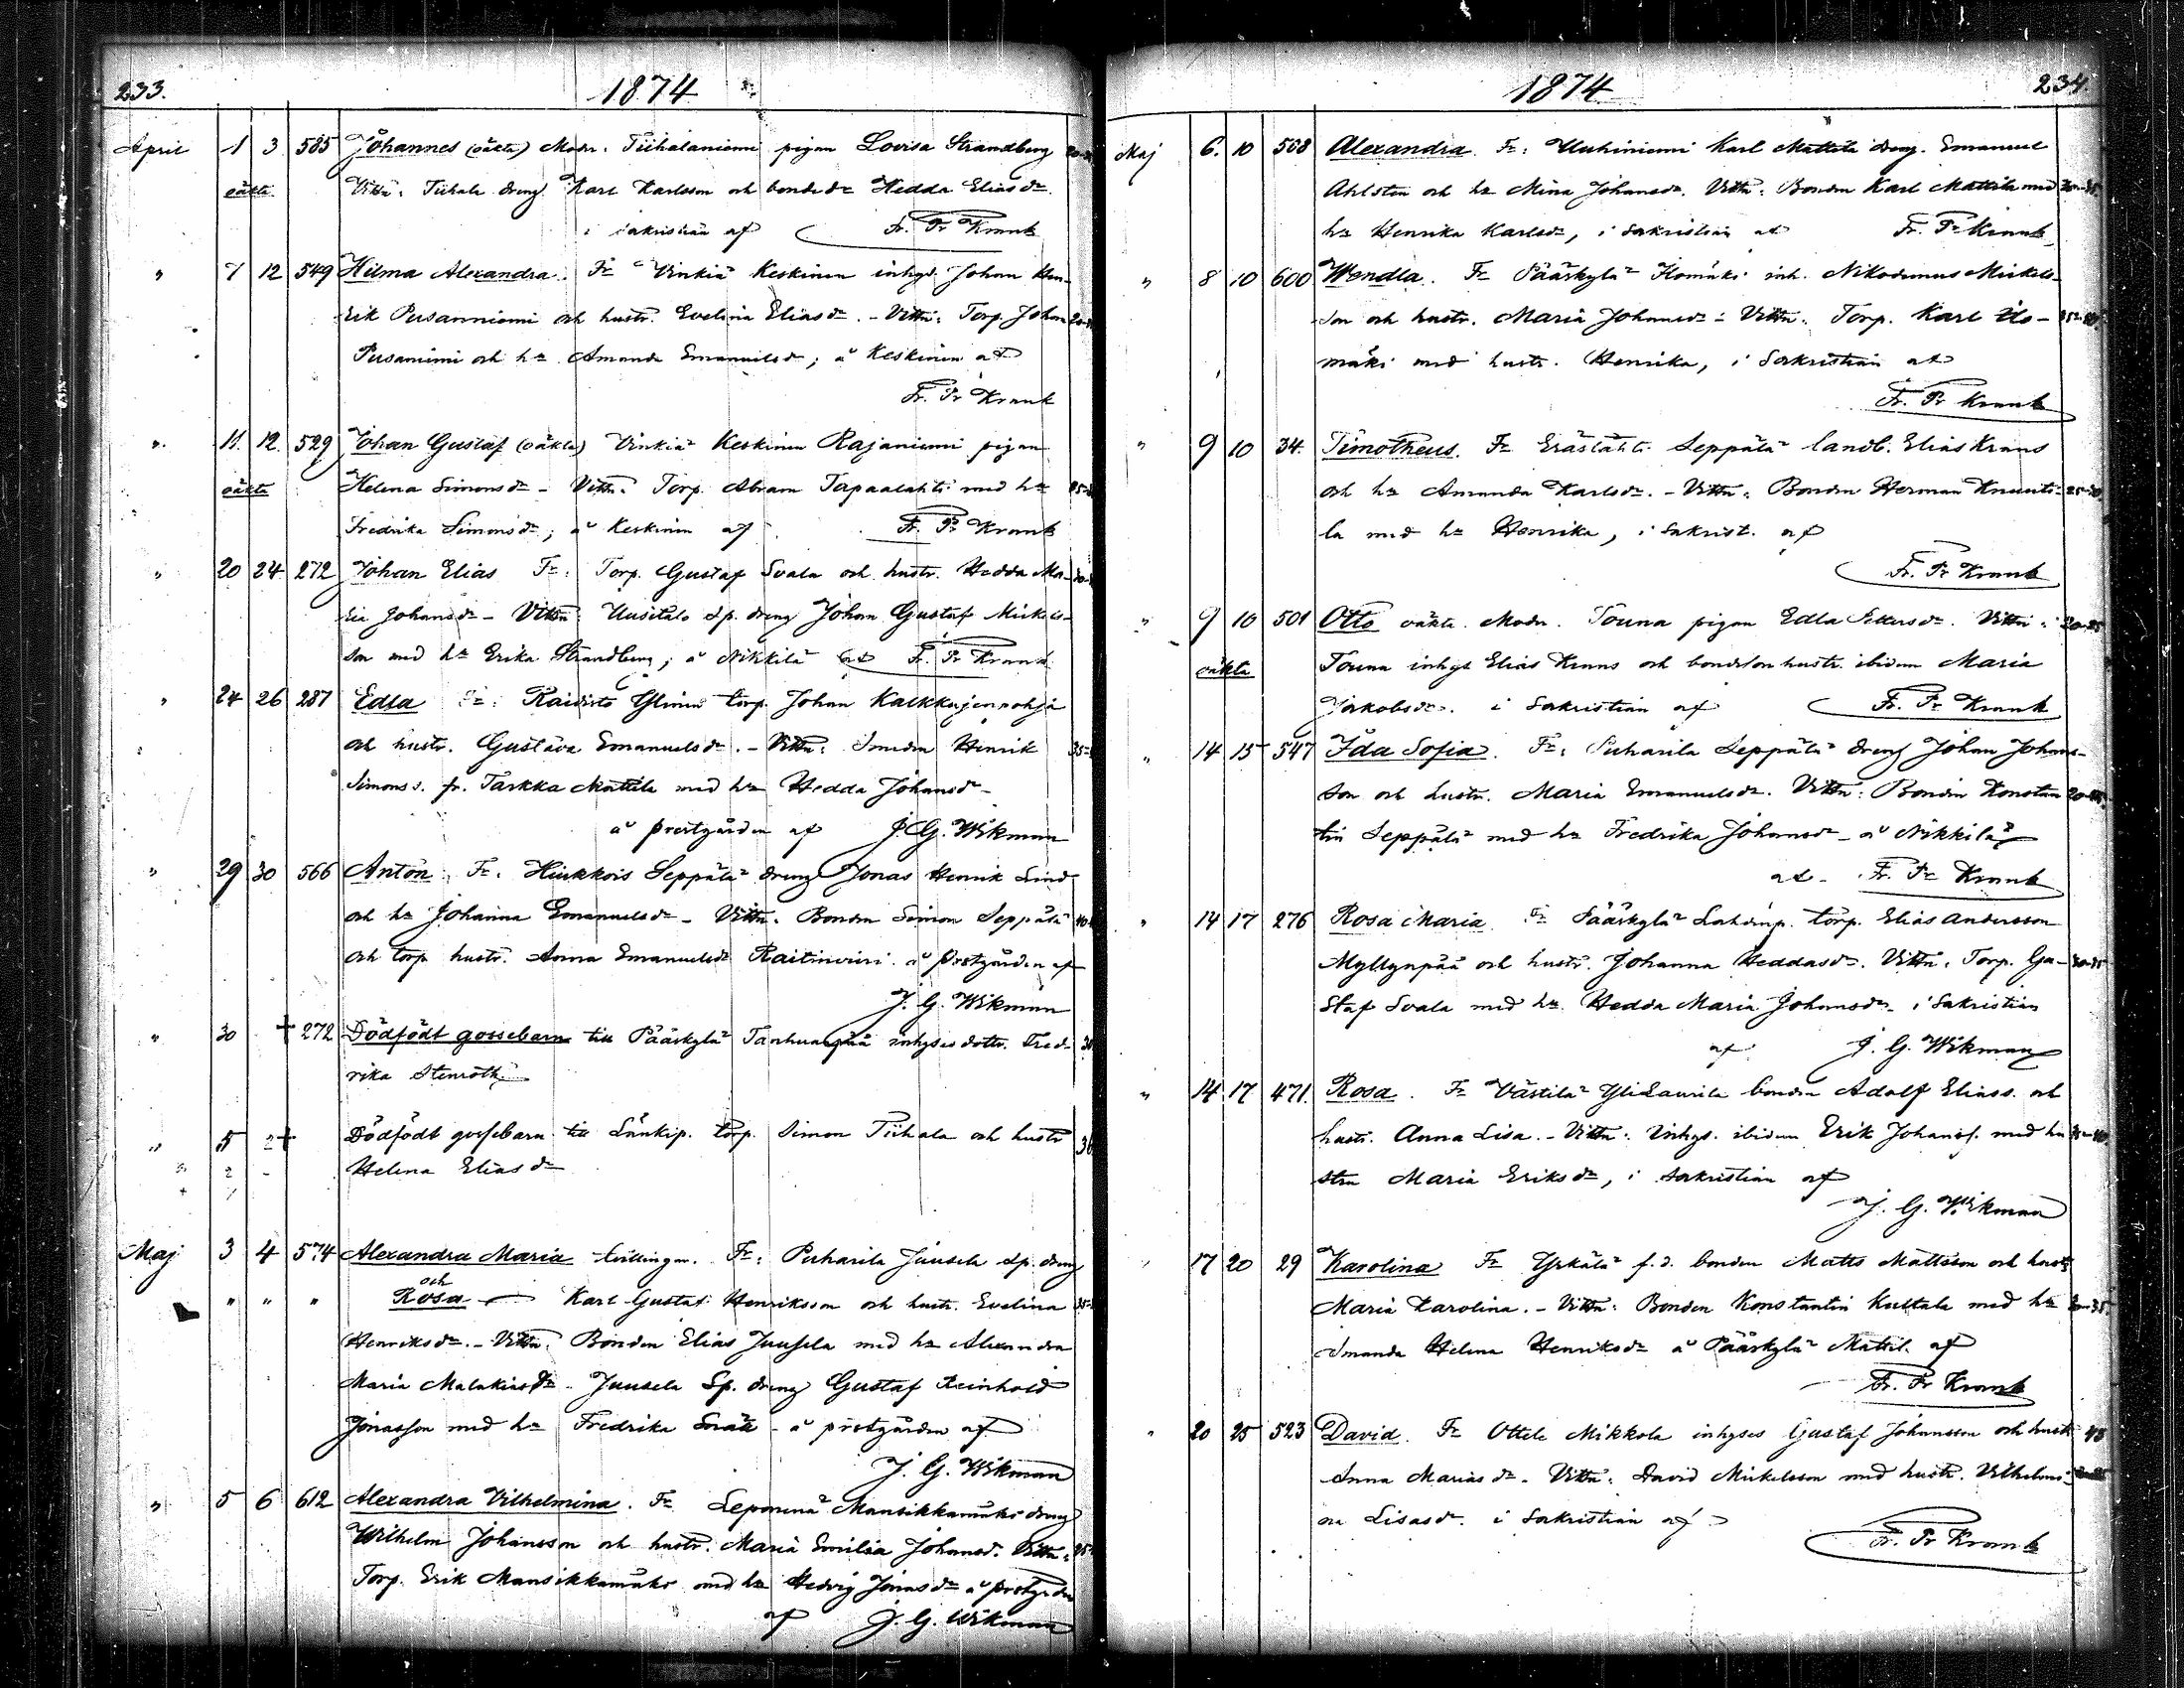 233.
1874
April 1 3 585 Johannes (oäkta) Modr. Tiihalaniemi pigan Lovisa Strandberg
oäkta Vittn: Tiihala dreng Karl Karlsson och bonded:r Hedda Eliasd:r
i sakristian af Fr. Fr Krank
" 7 12 549 Hilma Alexandra. Fr Vinkiä Keskinen inhys. Johan Hen-
rik Pusanniemi och hustr. Evelina Eliasd:r. - Vittn: Torp. Johan
Pusaniemi och h:u Amanda Emanuelsd:r; å Keskinen af
Fr. Fr Krank
" 11. 12. 529 Johan Gustaf (oäkta) Vinkiä Keskinen Rajaniemi pigan
oäkta Helena Simonsd:r - Vittn: Torp. Abram Tapaalahti med h:u
Fredrika Simonsd:r; å Keskinen af Fr. Fr Krank
" 20 24 272 Johan Elias Fr: Torp. Gustaf Svala och hustr. Hedda Ma-
ria Johansd:r - Vittn: Uusitalo Sp. dreng Johan Gustaf Mickels-
son med h:u Erika Strandberg; å Nikkilä af Fr. Fr Krank
" 24 26 287 Edla Fr: Raidisto Ylinen torp. Johan Kalkkujenpohja
och hustr. Gustava Emanuelsd:r. - Vittn: Smeden Henrik
Simonss. fr. Tarkka Mattila med h:u Hedda Johansd:r
å prestgården af J. G. Wikman
" 29 30 566 Anton Fr: Hiukkois Seppälä dreng Jonas Henrik Lind
och h:u Johanna Emanuelsd:r - Vittn: Bonden Simon Seppälä
och torp hustr. Anna Emanuelsd:r Raitinviiri å prestgården af
J. G. Wikman
" 30 + 272 Dödfödt gossebarn till Pääskylä Tanhuanpää inhyses dottr. Fred-
rika Stenroth.
" 5 + Dödfödt gossebarn till Länkip. torp. Simon Tiihala och hustr
Helena Eliasd:r
Maj 3 4 574 Alexandra Maria tvillingar. Fr: Puharila Juusela Sp. dreng
och
" " " Rosa Karl Gustaf Henriksson och hustr. Evelina
Henriksd:r. - Vittn: Bonden Elias Juusela med h:u Alexandra
Maria Malakiasd:r - Juusela Sp. dreng Gustaf Reinhold
Jonasson med h:u Fredrika - å prestgården af
J. G. Wikman
" 5 6 612 Alexandra Vilhelmina. Fr Leponenä Mansikkamäki dreng
Wilhelm Johansson och hustr. Maria Emilia Johansd. Vittn:
Torp. Erik Mansikkamäki med h:u Hedvig Jonasd:r å prestgården
af J. G. Wikman
1874
234.
Maj 6. 10 568 Alexandra. Fr: Uuhiniemi Karl Mattila dreng. Emanuel
Ahlsten och h:u Mina Johansd:r. Vittn: Bonden Karl Mattila med
h:u Henrika Karlsd:r, i sakristian af Fr. Fr Krank
" 8 10 600 Wendla. Fr Pääskylä Ilomäki inh. Nikodemus Mickels-
son och hustr. Maria Johansd:r - Vittn: Torp. Karl Ilo-
mäki med hustr. Henrika, i sakristian af
Fr. Fr Krank
" 9 10 34. Timotheus. Fr Eräslahti Seppälä landb. Elias Krans
och h:u Amanda Karlsd:r. - Vittn: Bonden Herman Knuuti-
la med h:u Henrika, i sakrist. af
Fr. Fr Krank
" 9 10 501 Otto oäkta. Modr. Touna pigan Edla Pettersd:r. Vittn: 20-25
oäkta Touna inhys Elias Krans och bondeson hustr. ibidem Maria
Jakobsd:r. i sakristian af Fr. Fr Krank
" 14 15 547 Ida Sofia. Fr: Puharila Seppälä dreng Johan Johans-
son och hustr. Maria Emanuelsd:r. Vittn: Bonden Konstan-
tin Seppälä med h:u Fredrika Johansd:r å Nikkilä
af Fr. Fr Krank
" 14 17 276 Rosa Maria Fr Pääskylä torp. Elias Andersson
Myllynpää och hustr. Johanna Heddasd:r. Vittn: Torp. Gu- 30-35
staf Svala med h:u Hedda Maria Johansd:r i sakristian
af J. G. Wikman
" 14 17 471. Rosa. Fr Västilä YliLaurila bonden Adolf Eliass. och
hustr. Anna Lisa. - Vittn: Inhys. ibidem Erik Johanss. med hu-
stru Maria Eriksd:r, i sakristian af
J. G. Wikman
" 17 20 29 Karolina Fr Yrkälä f.d. bonden Matts Mattsson och hustr
Maria Karolina. - Vittn: Bonden Konstantin Kuttala med h:u 30-35
Amanda Helena Henriksd:r å Pääskylä Mattil. af
Fr. Fr Krank
" 20 25 523 David. Fr Ottila Mikkola inhyses Gustaf Johansson och hustr 43
Anna Mariasd:r - Vittn: David Mickelsson med hustr. Vilhelmi-
na Lisasd:r. i sakristian af
Fr. Fr Krank